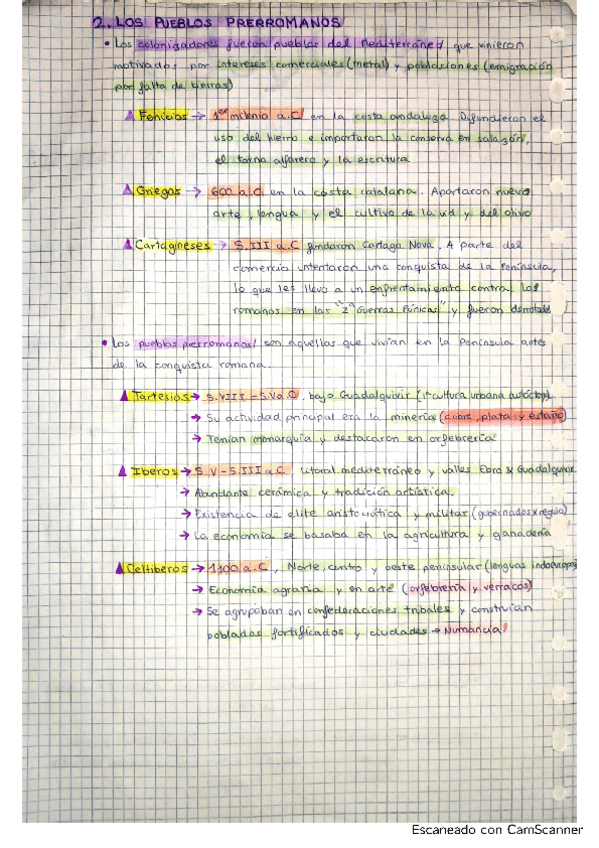 2. LOS PUEBLOS PRERROMANOS
• Los colonizadores fueron pueblos del Mediterráneo que vinieron
motivados por intereses comerciales (metal) y poblaciones (emigración
por falta de tierras)
Fenicios → 1er milenio a.C en la costa andaluza. Difundieron el
uso del hierro e importaron la conserva en salazón,
el torno alfarero y la escritura
Griegos → 600 a.C en la costa catalana. Aportaron nuevo
arte, lengua y el cultivo de la vid y del olivo
Cartagineses → S. III a.C fundaron Cartago Nova. A parte del
comercio intentaron una conquista de la Península,
lo que les llevó a un enfrentamiento contra los
romanos en las "2ª Guerras Púnicas" y fueron derrotados
• Los pueblos perromanos son aquellos que vivían en la Península antes
de la conquista romana.
Tartesios → S.VIII - S.V a.C, bajo Guadalquivir (1ª cultura urbana autóctona)
→ Su actividad principal era la minería (cobre, plata y estaño)
→ Tenían monarquía y destacaron en orfebrería
Iberos → S. V - S.III a.C. litoral mediterráneo y valles Ebro & Guadalquivir
→ Abundante cerámica y tradición artística.
→ Existencia de élite aristocrática y militar (gobernados x regulo)
→ La economía se basaba en la agricultura y ganadería
Celtiberos → 1100 a.C, Norte, centro y oeste peninsular (lenguas indoeuropeas)
→ Economía agraria y en arte (orfebrería y verracos)
→ Se agrupaban en confederaciones tribales y construían
poblados fortificados y ciudades → Numancia
Escaneado con CamScanner